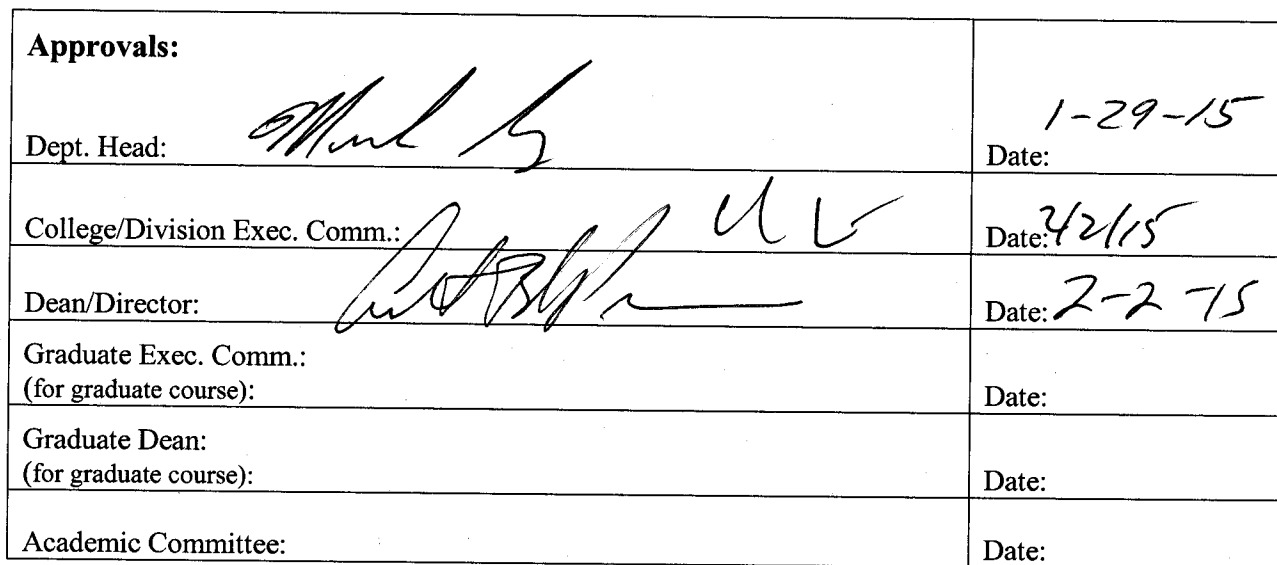 Approvals:
Dept. Head:
Date: 1-29-15
College/Division Exec. Comm.:
Date: 2/2/15
Dean/Director:
Date: 2-2-15
Graduate Exec. Comm.:
(for graduate course):
Date:
Graduate Dean:
(for graduate course):
Date:
Academic Committee:
Date: